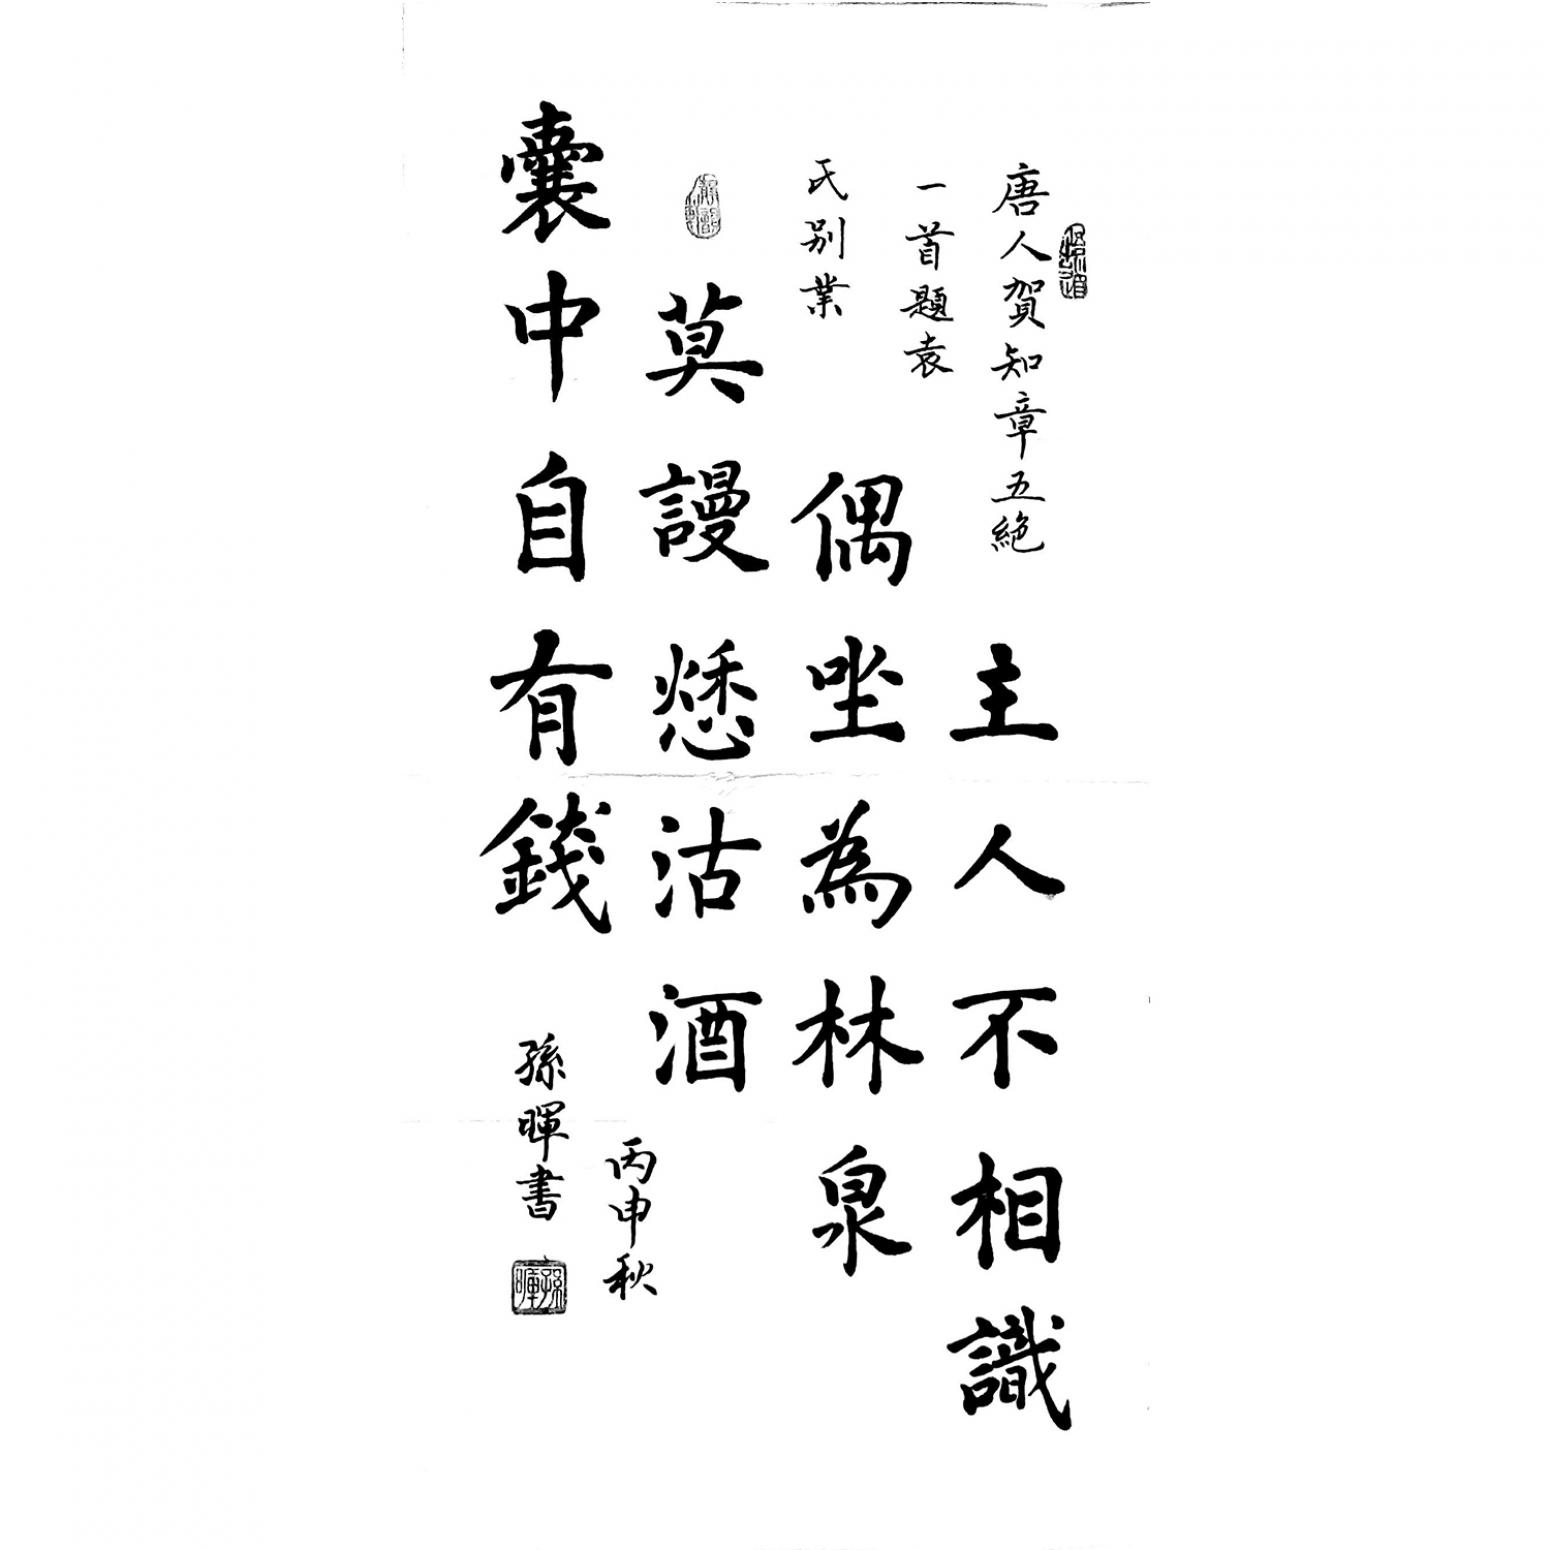 唐人賀知章五絕
一首題袁
氏別業
主人不相識
偶坐為林泉
莫謾愁沽酒
囊中自有錢
丙申秋
孫暉書
孫暉